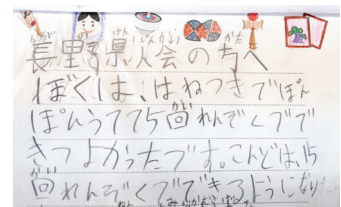 長野県人会の方へ
ぼくは、はねつきでぽん
ぽんうてて75回れんぞくでで
きつよかったです。こんどは、15
回れんぞくでできるようになり